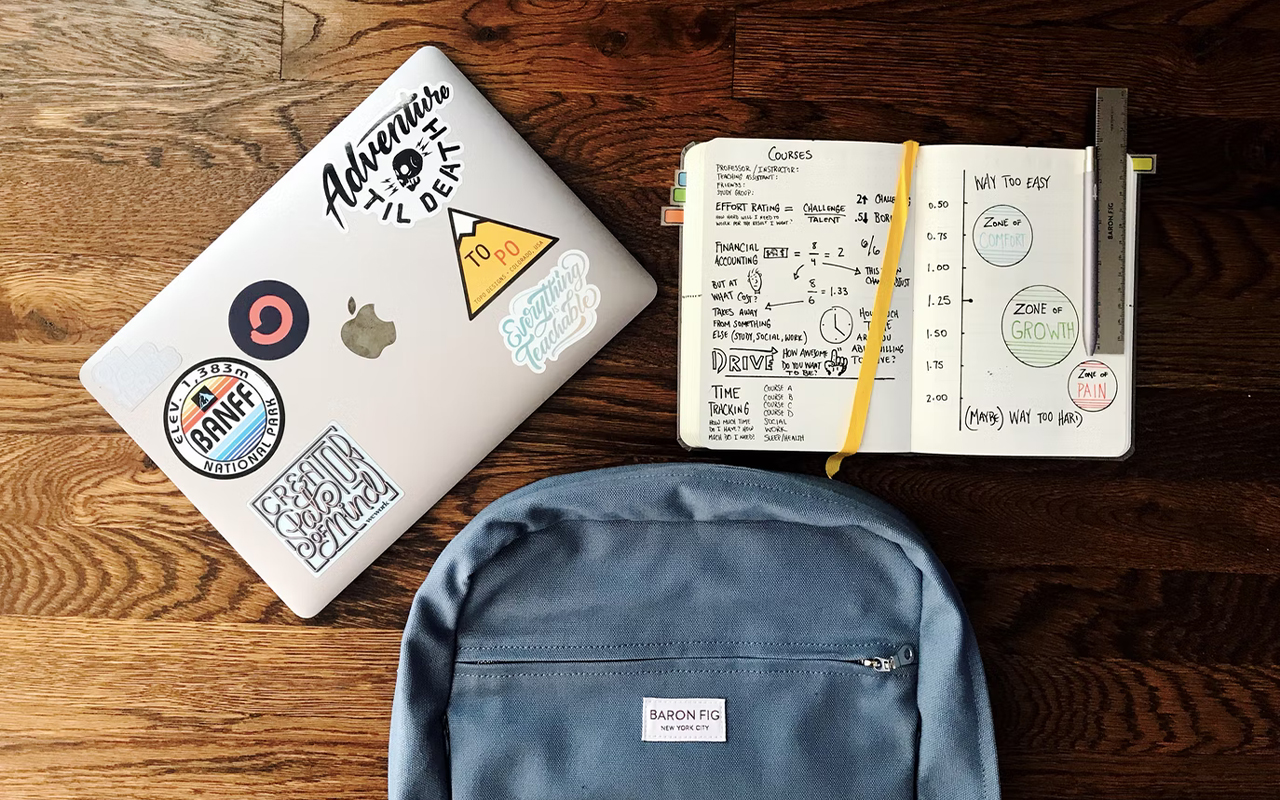 Adventure
TIL DEATH
TO
PO
TOPO DESIGNS • COLORADO, USA
Everything
is
Teachable
ELEV. 1,383m
BANFF
NATIONAL PARK
CREATOR
State
OF Mind
wework
COURSES
PROFESSOR / INSTRUCTOR:
TEACHING ASSISTANT:
FRIENDS:
STUDY GROUP:
EFFORT RATING = CHALLENGE
TALENT
HOW HARD WILL I NEED TO
WORK FOR THE RESULT I WANT?
2↑
.5↓
FINANCIAL
ACCOUNTING
= 8/4 = 2
6/6
THIS
BUT AT
WHAT COST?
8/6 = 1.33
TAKES AWAY
FROM SOMETHING
ELSE (STUDY, SOCIAL, WORK)
DRIVE
HOW AWESOME
DO YOU WANT
TO BE?
TIME
TRACKING
HOW MUCH TIME
DO I HAVE? HOW
MUCH DO I NEED?
COURSE A
COURSE B
COURSE C
COURSE D
SOCIAL
WORK
SLEEP/HEALTH
WAY TOO EASY
0.50
0.75
1.00
1.25
1.50
1.75
2.00
ZONE OF
COMFORT
ZONE OF
GROWTH
ZONE OF
PAIN
(MAYBE) WAY TOO HARD
BARON FIG
BARON FIG
NEW YORK CITY